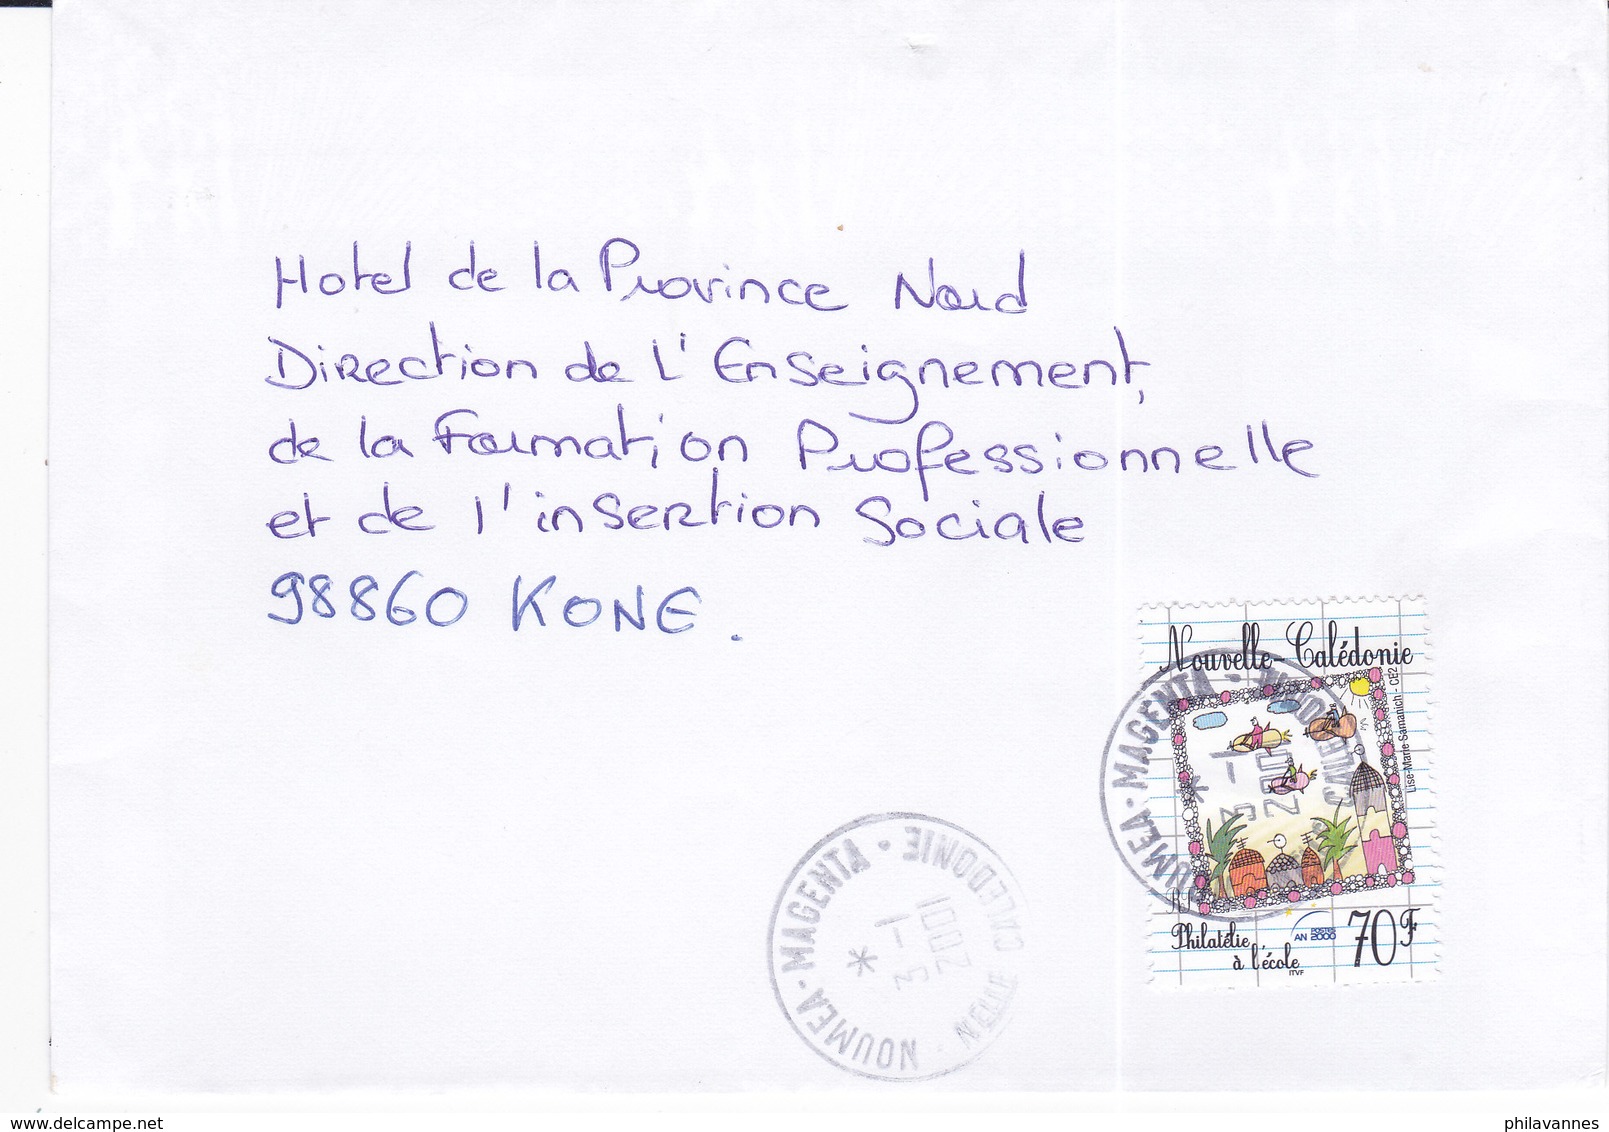 Hotel de la Province Nord
Direction de l'Enseignement,
de la Formation Professionnelle
et de l'insertion Sociale
98860 KONE.
Nouvelle-Calédonie
Lise-Marie Samanich - CE2
Philatélie
à l'école
ITVF
AN POSTES 2000
70F
NOUMEA-MAGENTA
3 -1
2001
* NOUMEA-MAGENTA - NELLE CALEDONIE
3 -1
2001
*
delcampe.net
philavannes